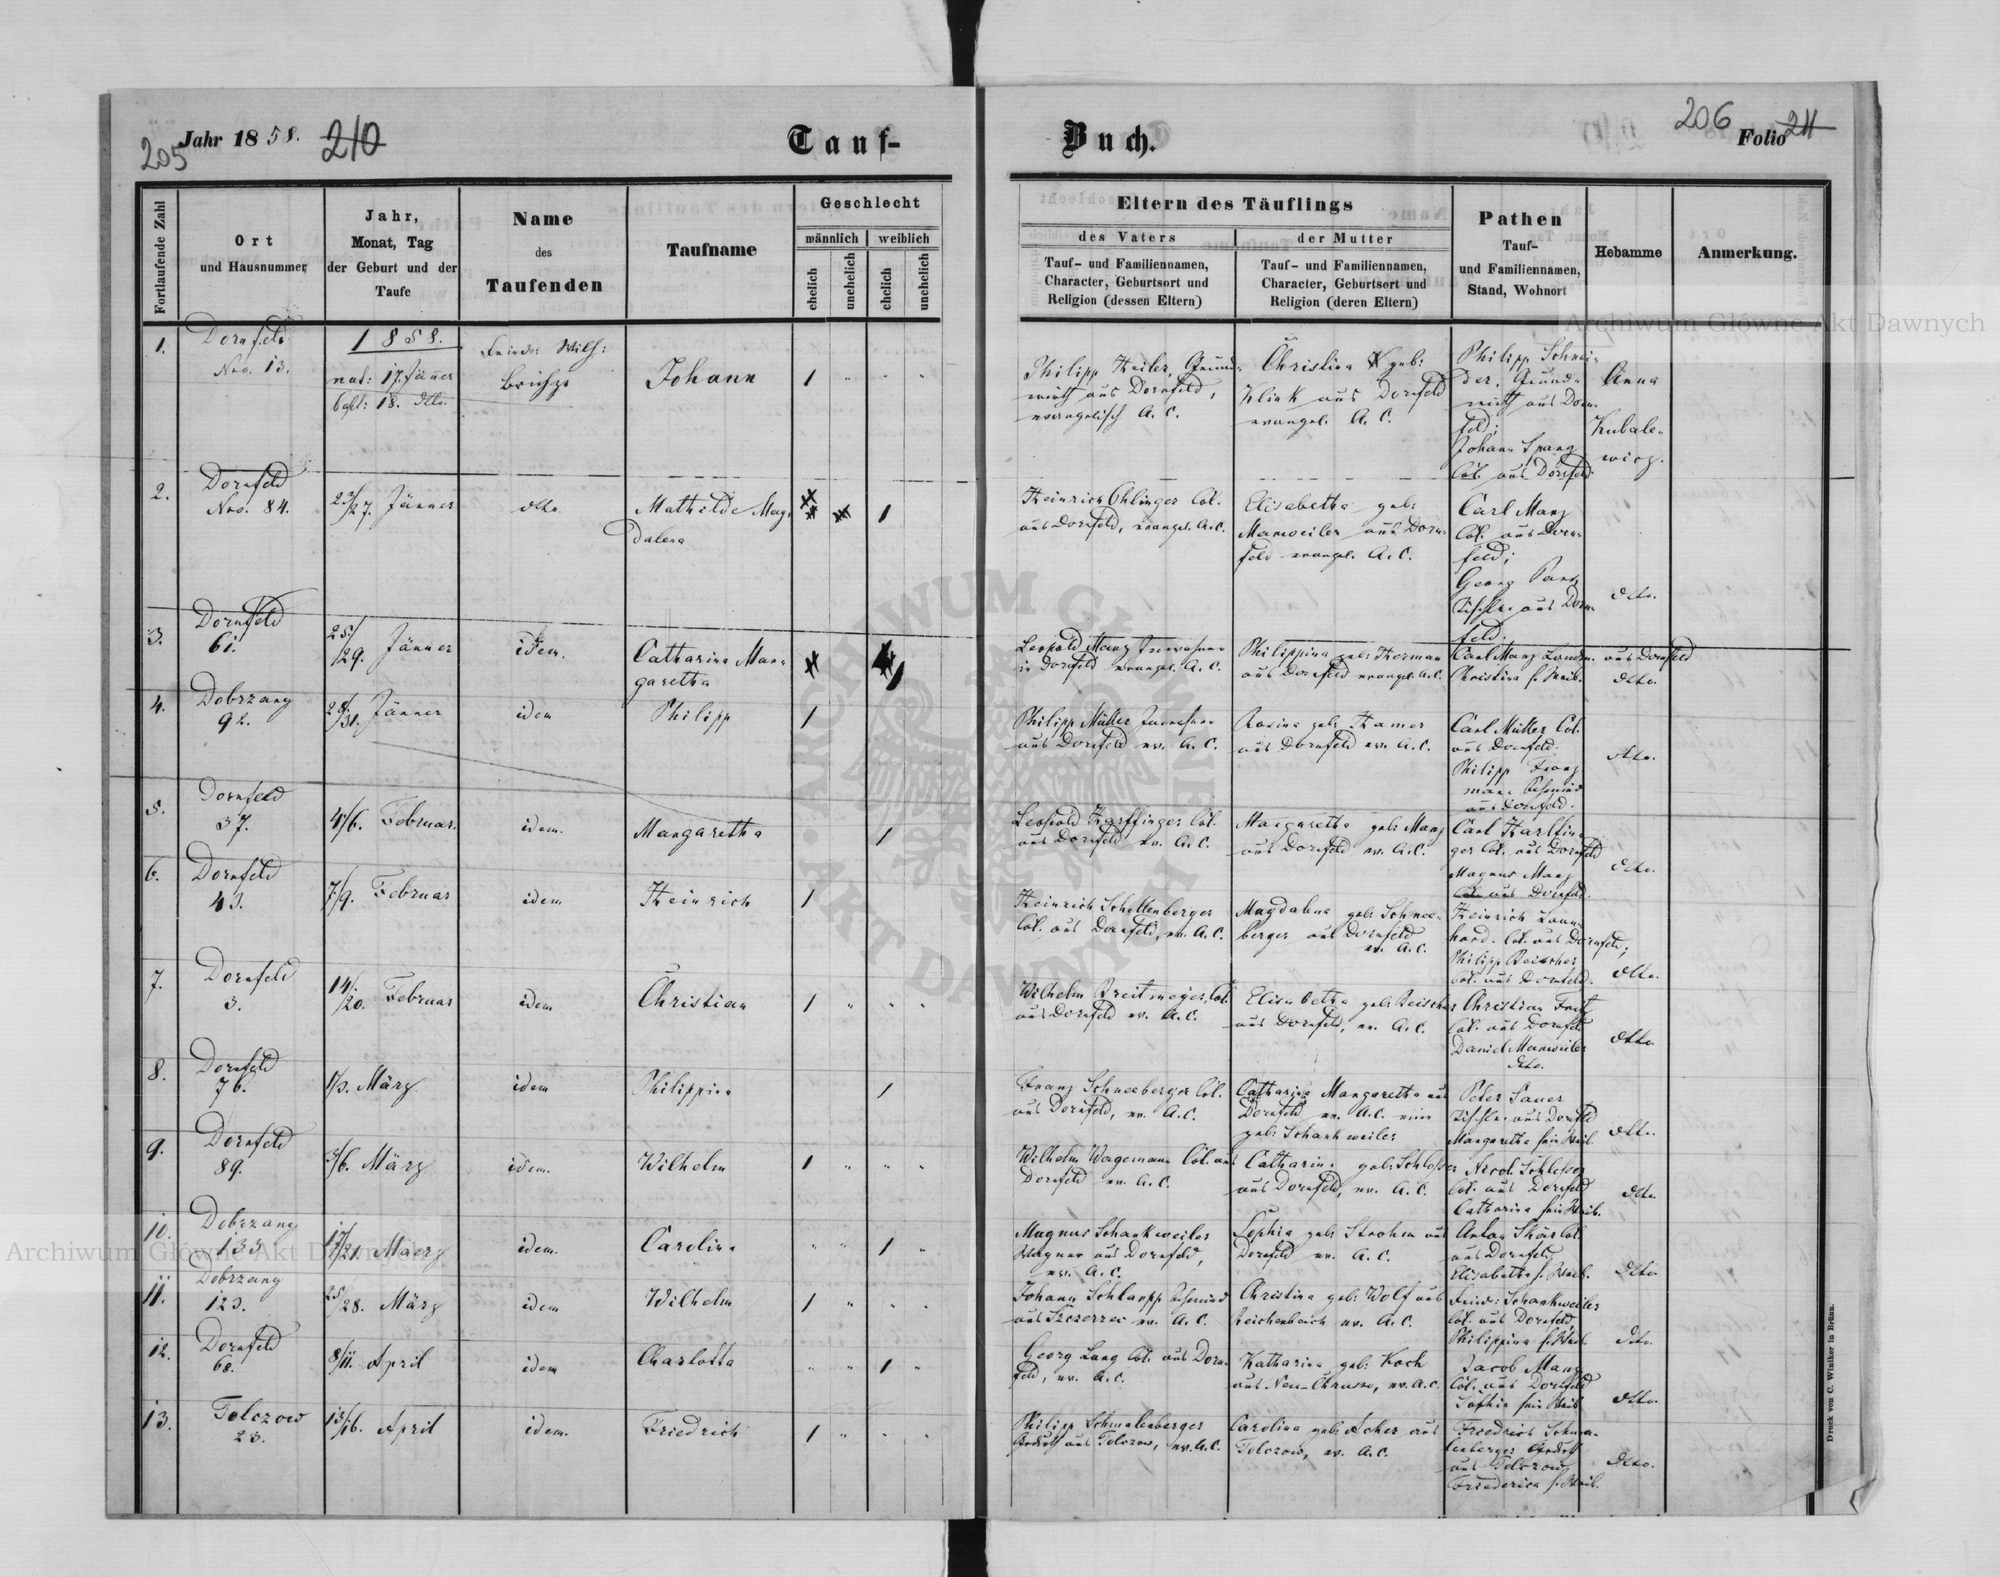 205 Jahr 1858. 210
Tauf-
Buch.
206 Folio 211
Fortlaufende Zahl
Ort
und Hausnummer
Jahr,
Monat, Tag
der Geburt und der
Taufe
Name
des
Taufenden
Taufname
Geschlecht
männlich
weiblich
ehelich
unehelich
ehelich
unehelich
Eltern des Täuflings
des Vaters
Tauf- und Familiennamen,
Character, Geburtsort und
Religion (dessen Eltern)
der Mutter
Tauf- und Familiennamen,
Character, Geburtsort und
Religion (deren Eltern)
Pathen
Tauf-
und Familiennamen,
Stand, Wohnort
Hebamme
Anmerkung.
1. Dornfeld
Nro. 13.
1858.
nat: 17. Jänner
bapt: 18. dtto.
Johann
1
Philipp
aus Dornfeld,
evangelisch A. C.
Christina geb:
Klink aus Dornfeld
evangel. A. C.
Philipp Schnei-
der, Grund-
wirth aus Dorn-
feld;
Johann Spang
Col. aus Dornfeld
Anna
Kubale-
wicz.
2. Dornfeld
Nro. 84.
23/27. Jänner
dtto
Mathilde Mag-
dalena
1
Heinrich Ohlinger Col.
aus Dornfeld, evangel. A. C.
Elisabetha geb:
Manweiler aus Dorn-
feld evangel. A. C.
Carl Manz
Col. aus Dorn-
feld;
Georg
Tischler aus Dorn-
feld.
dtto.
3. Dornfeld
61.
25./29. Jänner
idem.
Catharina Mar-
garetha
1
Leopold Manz Inwohner
in Dornfeld evangel. A. C.
Philippina geb: Herman
aus Dornfeld evangel. A. C.
Carl Manz aus Dornfeld
Christina s. Weib.
dtto.
4. Dobrzany
92.
28./31. Jänner
idem
Philipp
1
Philipp Müller Inwohner
aus Dornfeld ev. A. C.
Rosina geb: Hamer
aus Dornfeld ev. A. C.
Carl Müller Col.
aus Dornfeld.
Philipp
aus Dornfeld.
dtto.
5. Dornfeld
37.
4/6. Februar.
idem.
Margaretha
1
Leopold Harffinger Col.
aus Dornfeld ev. A. C.
Margaretha geb: Manz
aus Dornfeld ev. A. C.
Carl Harlfin-
ger Col. aus Dornfeld
Magnus Manz
Col. aus Dornfeld.
dtto.
6. Dornfeld
43.
7/9. Februar
idem
Heinrich
1
Heinrich Schellenberger
Col. aus Dornfeld, ev. A. C.
Magdalena geb: Schnee-
berger aus Dornfeld
ev. A. C.
Heinrich
Col. aus Dornfeld;
Philipp Reicher
Col. aus Dornfeld.
dtto.
7. Dornfeld
3.
14./20. Februar
idem
Christian
1
Wilhelm Breitmayer, Col.
aus Dornfeld ev. A. C.
Elisabetha geb: Reicher
aus Dornfeld, ev. A. C.
Christian
Col. aus Dornfeld
Daniel Manweiler
dtto.
dtto
8. Dornfeld
76.
1/3. März
idem
Philippina
1
Franz Schneeberger Col.
aus Dornfeld, ev. A. C.
Catharina Margaretha aus
Dornfeld ev. A. C. eine
geb: Schankweiler
Peter Sauer
Tischler aus Dornfeld
Margaretha sein Weib.
dtto.
9. Dornfeld
89.
3/6. März
idem.
Wilhelm
1
Wilhelm Wagemann Col. aus
Dornfeld ev. A. C.
Catharina geb: Schlosser
aus Dornfeld, ev. A. C.
Nicol. Schlosser
Col. aus Dornfeld
Catharina sein Weib.
dtto.
10. Dobrzany
133.
17/21. Maerz
idem.
Carolina
1
Magnus Schankweiler
Wagner aus Dornfeld,
ev. A. C.
Sophia geb: Strohm aus
Dornfeld ev. A. C.
Anton Col.
aus Dornfeld,
Elisabetha s. Weib.
dtto.
11. Dobrzany
123.
25/28. März
idem
Wilhelm
1
Johann Schlapp
aus Szczerzec ev. A. C.
Christina geb: Wolf aus
Reichenbach ev. A. C.
Fried: Schankweiler
Col. aus Dornfeld,
Philippina s. Weib.
dtto.
12. Dornfeld
68.
8/11. April
idem
Charlotta
1
Georg Lang Col. aus Dorn-
feld, ev. A. C.
Katharina geb: Koch
aus Neu-Chrusno, ev. A. C.
Jacob Manz
Col. aus Dornfeld
Sophia sein Weib
dtto.
13. Tolczow
23.
13/16. April
idem.
Friedrich
1
Philipp Schmalenberger
aus Tolczow, ev. A. C.
Carolina geb: aus
Tolczow, ev. A. C.
Friedrich Schma-
lenberger
aus Tolczow
Friederica s. Weib.
dtto.
Druck von C. Winiker in Brünn.
Archiwum Główne Akt Dawnych
Archiwum Główne Akt Dawnych
ARCHIWUM GŁÓWNE AKT DAWNYCH